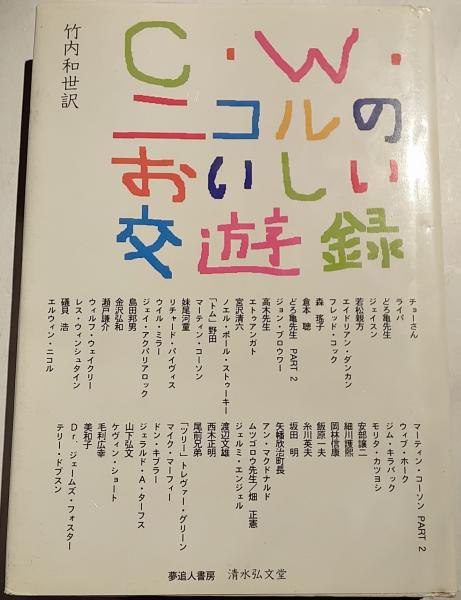 竹内和世訳
C・W・
ニコルの
おいしい
交遊録
チョーさん
ライパ
どろ亀先生
ジェイスン
若松親方
エイドリアン・ダンカン
フレッド・コック
森 瑤子
倉本 聰
どろ亀先生 PART 2
ジョン・ブロウワー
高木先生
エトゥアンガト
宮沢清六
ノエル・ポール・ストゥーキー
「トム」野田
マーティン・コーソン
妹尾河童
リチャード・パイヴィス
ウイル・ミラー
ジェイ・アクバリアロック
島田邦男
金沢弘和
瀬戸謙介
ウィルフ・ウェイクリー
レス・ウィンシュタイン
礒貝 浩
エルウィン・ニコル
マーティン・コーソン PART 2
ウィブ・ホーク
ジム・キラバック
モリタ・カツヨシ
安部譲二
細川護熙
岡林信康
飯原一夫
糸川英夫
坂田 明
矢幡欣治町長
アン・マクドナルド
ムツゴロウ先生/畑 正憲
ジェルミ・エンジェル
渡辺文雄
西木正明
尾前兄弟
「ツリー」トレヴァー・グリーン
マイク・マーフィー
ドン・キブラー
ジェラルド・A・ターフス
山下弘文
ケヴィン・ショート
毛利広幸
美和子
Dr.ジェームズ・フォスター
テリー・ドブスン
夢追人書房 清水弘文堂